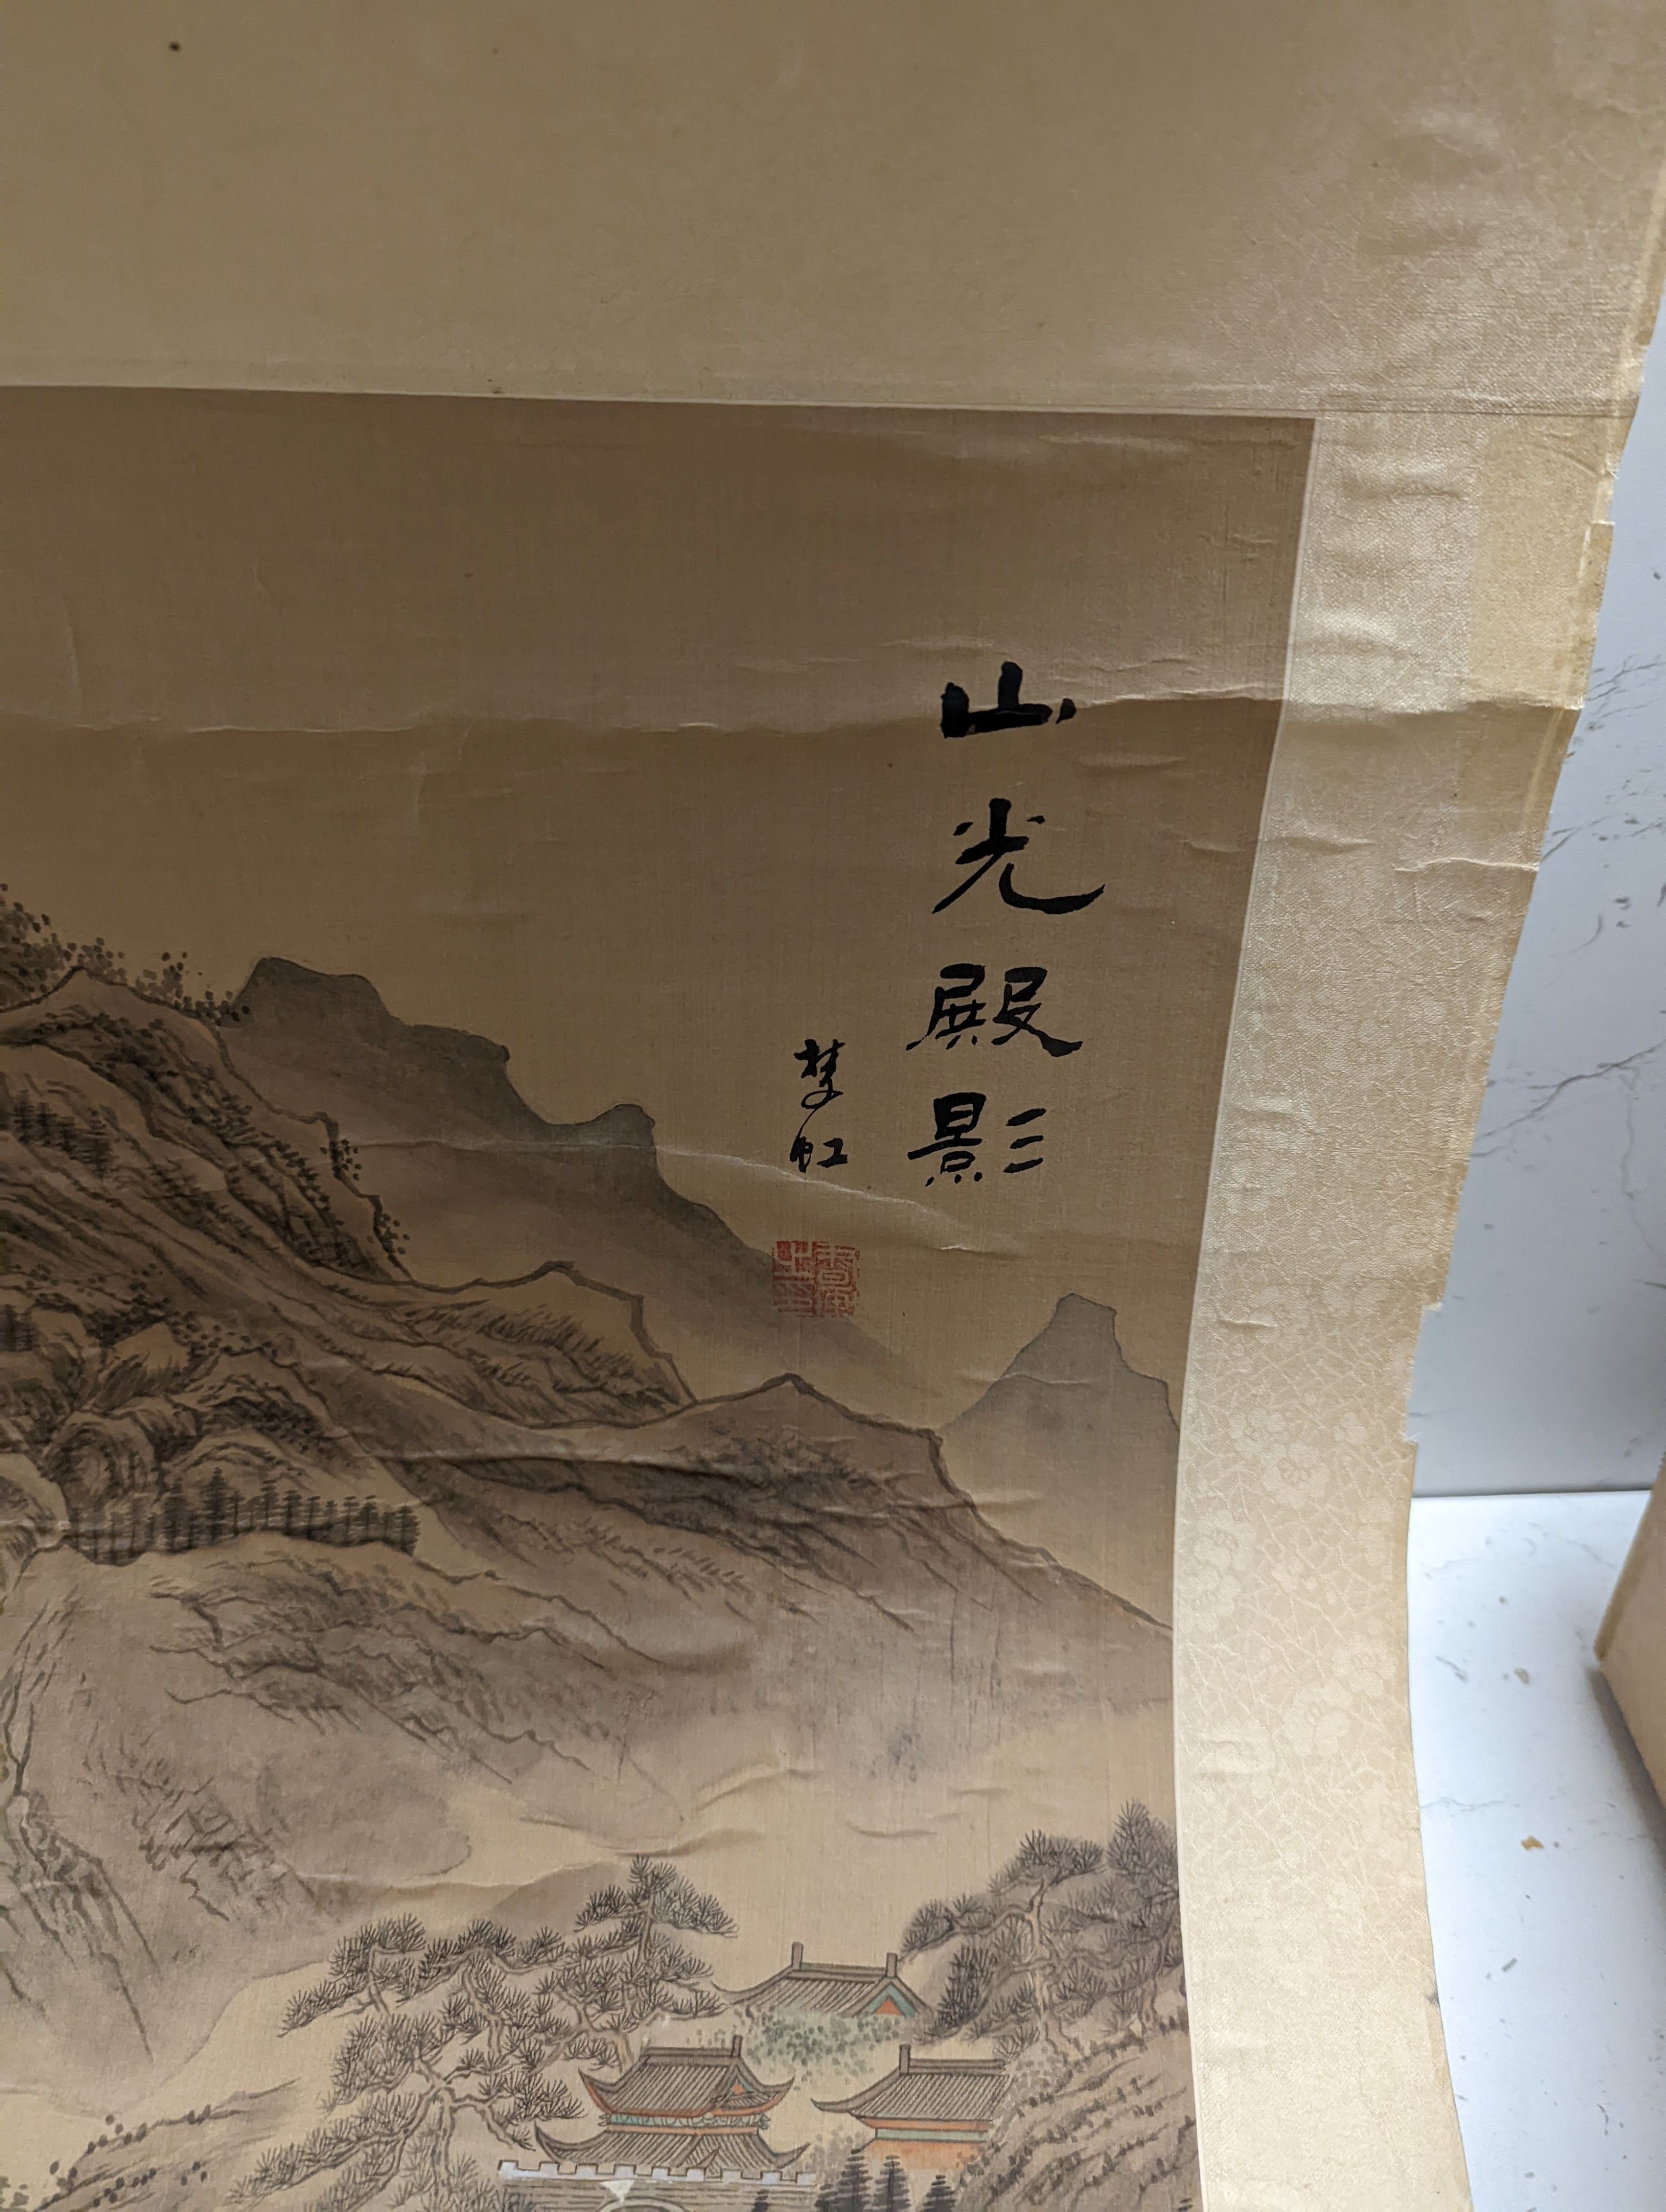 山光殿影
梦虹